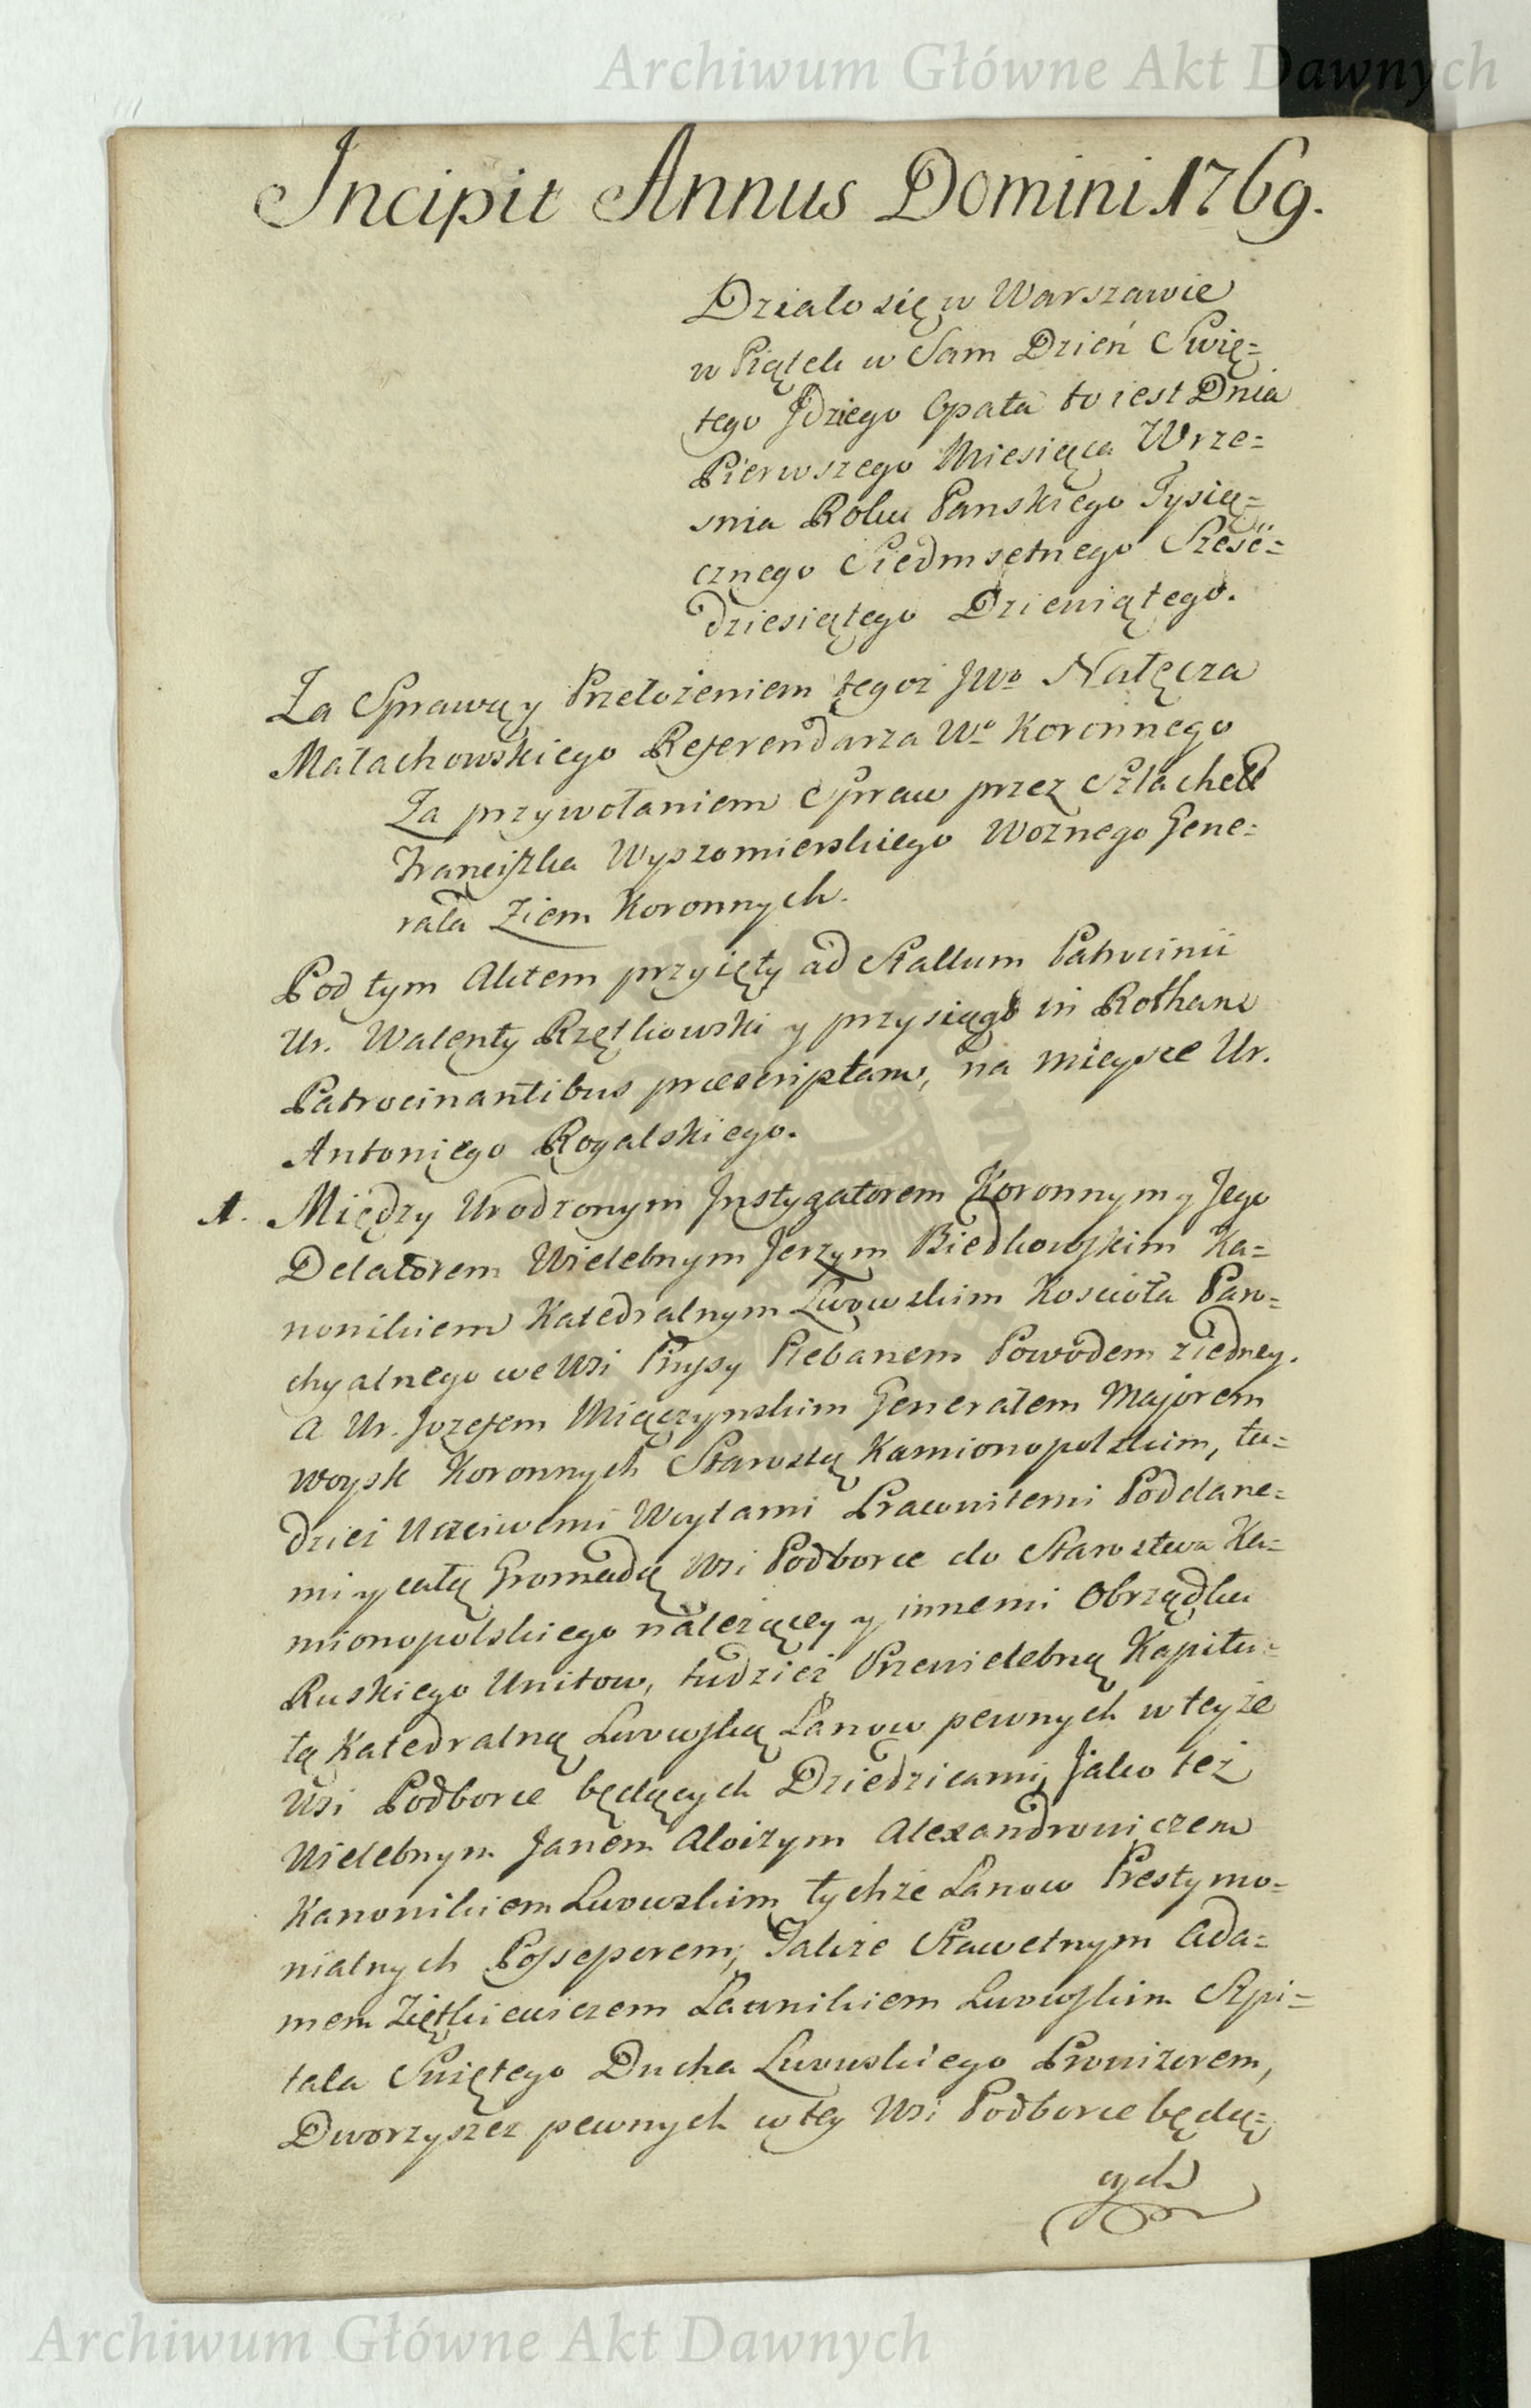 Archiwum Główne Akt Dawnych
Incipit Annus Domini 1769.
Działo się w Warszawie
w Piątek w Sam Dzień Swię=
tego Jdziego Opata to iest Dnia
Pierwszego Miesiąca Wrze=
snia Roku Panskiego Tysią=
cznego Siedmsetnego Szesć=
dziesiątego Dziewiątego.
Za Sprawą y Przełożeniem tegoż JWo Nałęcza
Małachowskiego Referendarza Wo Koronnego
Za przywołaniem Spraw przez Szlachet
Franciszka Wyszomierskiego Woznego Gene=
rała Ziem Koronnych.
Pod tym Aktem przyięty ad Stallum Patrocinii
Ur. Walenty Rzętkowski y przysiągł in Rotham
Patrocinantibus præscriptam, na mieysce Ur.
Antoniego Rogalskiego.
1. Między Urodzonym Jnstygatorem Koronnym y Jego
Delatorem Wielebnym Jerzym Biedkowskim Ka=
nonikiem Katedralnym Lwowskim Koscioła Paro=
chyalnego we Wsi Prusy Plebanem Powodem z iedney.
A Ur. Jozefem Miączynskim Generałem Majorem
Woysk Koronnych Starostą Kamionopolskim, tu=
dzież Uczciwemi Woytami Prawnitemi Poddane=
mi y całą Gromadą Wsi Podborce do Starostwa Ka=
mionopolskiego należącey y innemi Obrządku
Ruskiego Unitow, tudzież Przewielebną Kapitu=
łą Katedralną Lwowską Łanow pewnych w teyże
Wsi Podborce będących Dziedzicami, Jako też
Wielebnym Janem Aloizym Alexandrowiczem
Kanonikiem Lwowskim tychże Łanow Prestymo=
nialnych Possessorem, Także Sławetnym Ada=
mem Ziętkiewiczem Ławnikiem Lwowskim Szpi=
tala Swiętego Ducha Lwowskiego Prowizorem,
Dworzyszcz pewnych w tey Wsi Podborce będą=
cych
Archiwum Główne Akt Dawnych